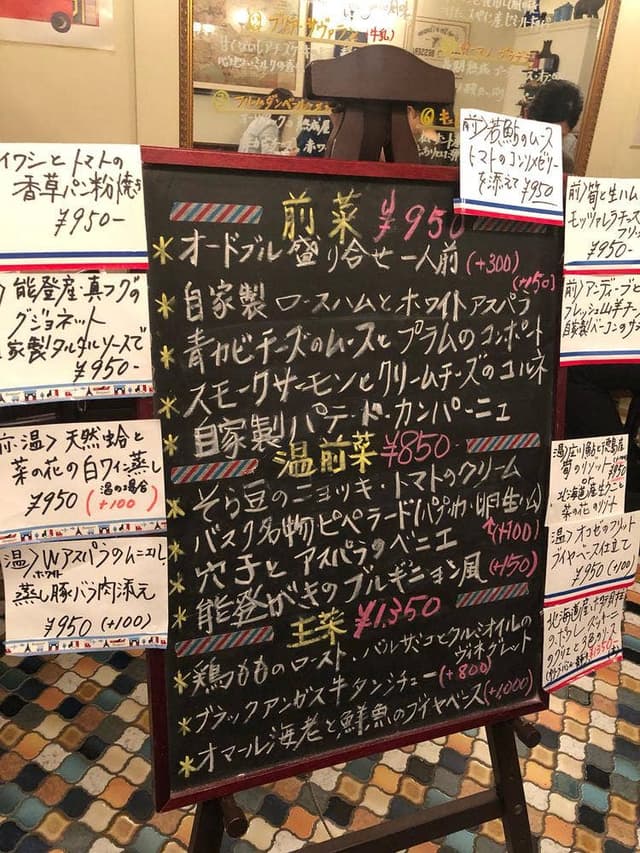 (牛乳)
イワシとトマトの
香草パン粉焼き
¥950-
能登産・真フグの
グジョネット
自家製タルタルソースで
¥950-
前・温〉天然蛤と
菜の花の白ワイン蒸し
温の場合
¥950 (+100)
温〉Wアスパラのムニエル
ホワイト
蒸し豚バラ肉添え
¥950 (+100)
前菜 ¥950
*オードブル盛り合せ一人前(+300)
(+150)
*自家製ロースハムとホワイトアスパラ
*青カビチーズのムースとプラムのコンポート
*スモークサーモンとクリームチーズのコルネ
*自家製パテ・ド・カンパーニュ
温前菜 ¥850
*そら豆のニョッキ・トマトのクリーム
*バスク名物ピペラード(パプリカ・卵・生ハム)
*穴子とアスパラのベニエ (+100)
*能登がきのブルギニョン風(+150)
主菜 ¥1350
*鶏もものロースト・バルサミコとクルミオイルの
ヴィネグレット
*ブラックアンガス牛タンシチュー(+800)
*オマール海老と鮮魚のブイヤベース(+1,000)
前〉若鮎のムース
トマトのコンソメゼリー
を添えて ¥950
前〉筍と生ハム
モッツァレラチーズ
フリッ
¥950-
前〉アンディーブと
フレッシュ山羊チ
自家製ベーコンのサ
筍のリゾット
北海道産生うにと
菜の花のリゾット
温〉オコゼのフリット
ブイヤベース仕立て
¥950 (+100)
北海道産・ホタテ貝柱
¥1350